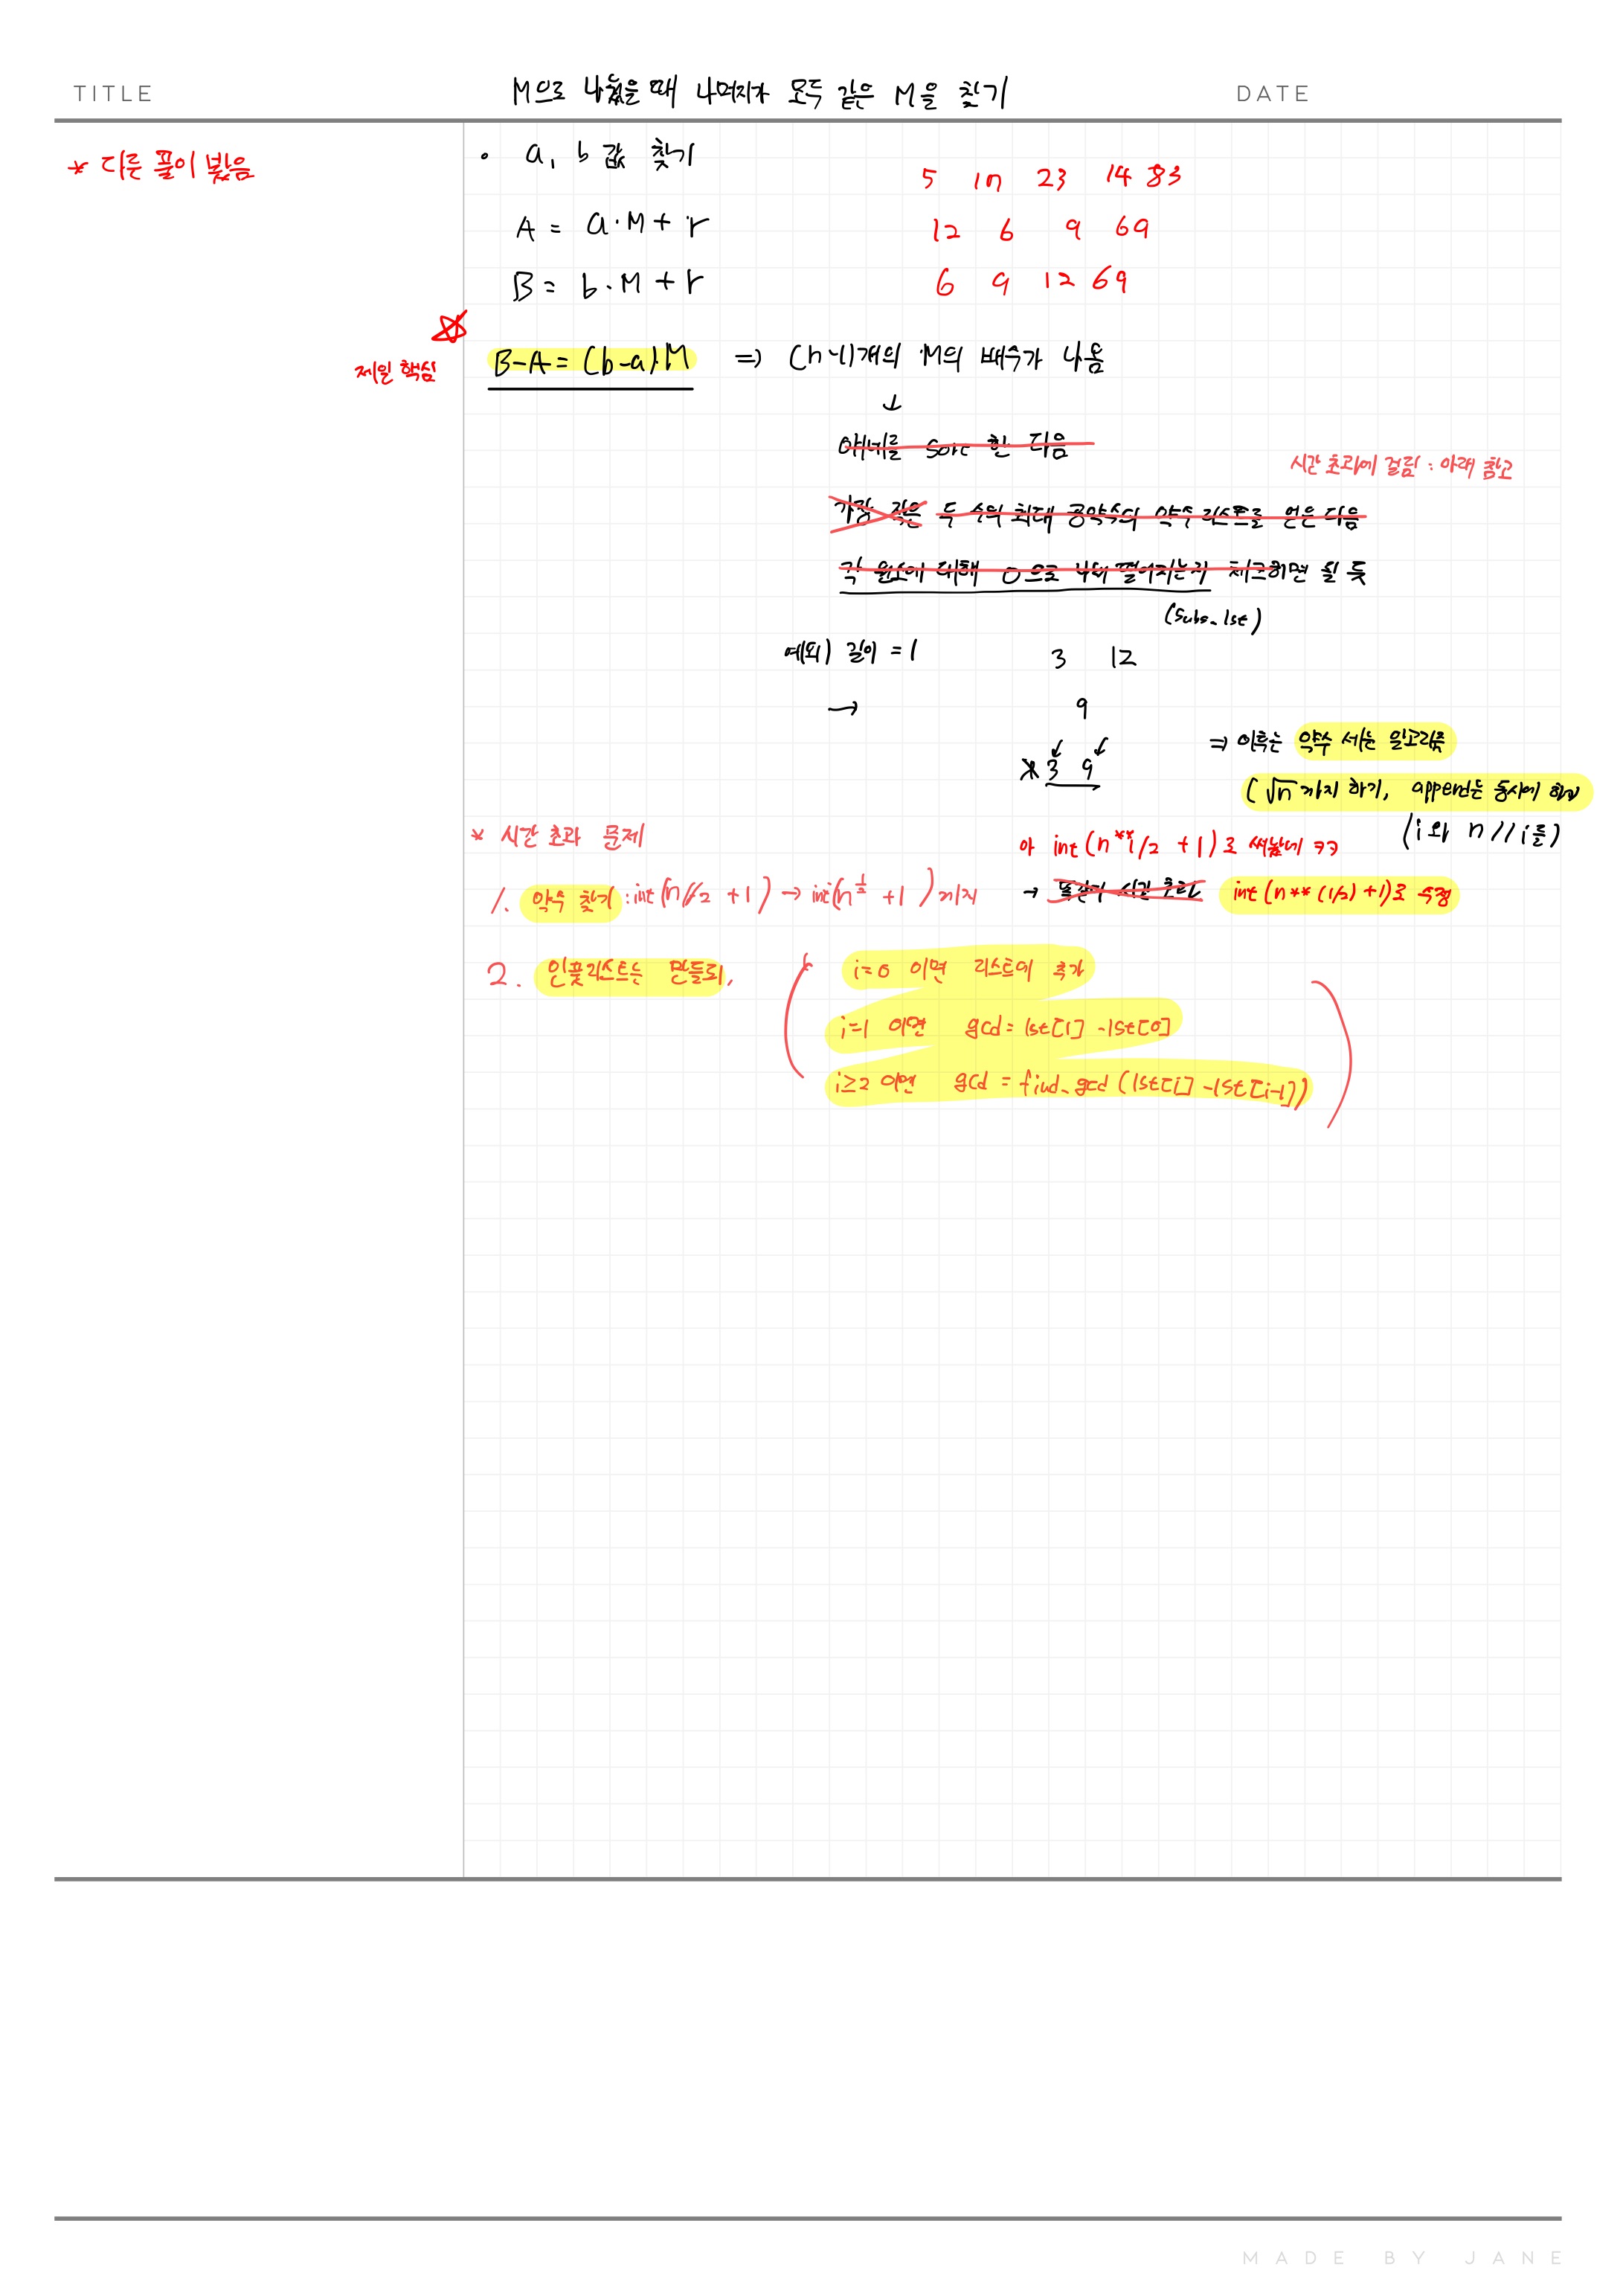 TITLE
M으로 나눴을 때 나머지가 모두 같은 M을 찾기
DATE
* 다른 풀이 봤음
• a, b 값 찾기
A = a·M + r
B = b·M + r
5 17 23 14 83
12 6 9 69
6 9 12 69
제일 핵심
B-A = (b-a)·M ⇒ (n-1)개의 M의 배수가 나옴
↓
얘네를 sort 한 다음
시간 초과에 걸림 : 아래 참고
가장 작은 두 수의 최대 공약수의 약수 리스트를 얻은 다음
각 원소에 대해 0으로 나눠 떨어지는지 체크하면 될 듯
(subs_lst)
예외) 길이 = 1
3 12
→ 9
* 3 9
⇒ 이후는 약수 세는 알고리즘
(√n 까지 하기, append는 동시에 하기
(i와 n//i를)
* 시간 초과 문제
아 int(n**1/2 + 1)로 써놨네 ㅋㅋ
1. 약수 찾기 : int(n//2 + 1) → int(n^½ + 1) 까지
→ 시간 초과 int(n**(1/2)+1)로 수정
2. 인풋리스트는 만들되,
i=0 이면 리스트에 추가
i=1 이면 gcd = lst[1] - lst[0]
i≥2 이면 gcd = find_gcd (lst[i] - lst[i-1])
MADE BY JANE